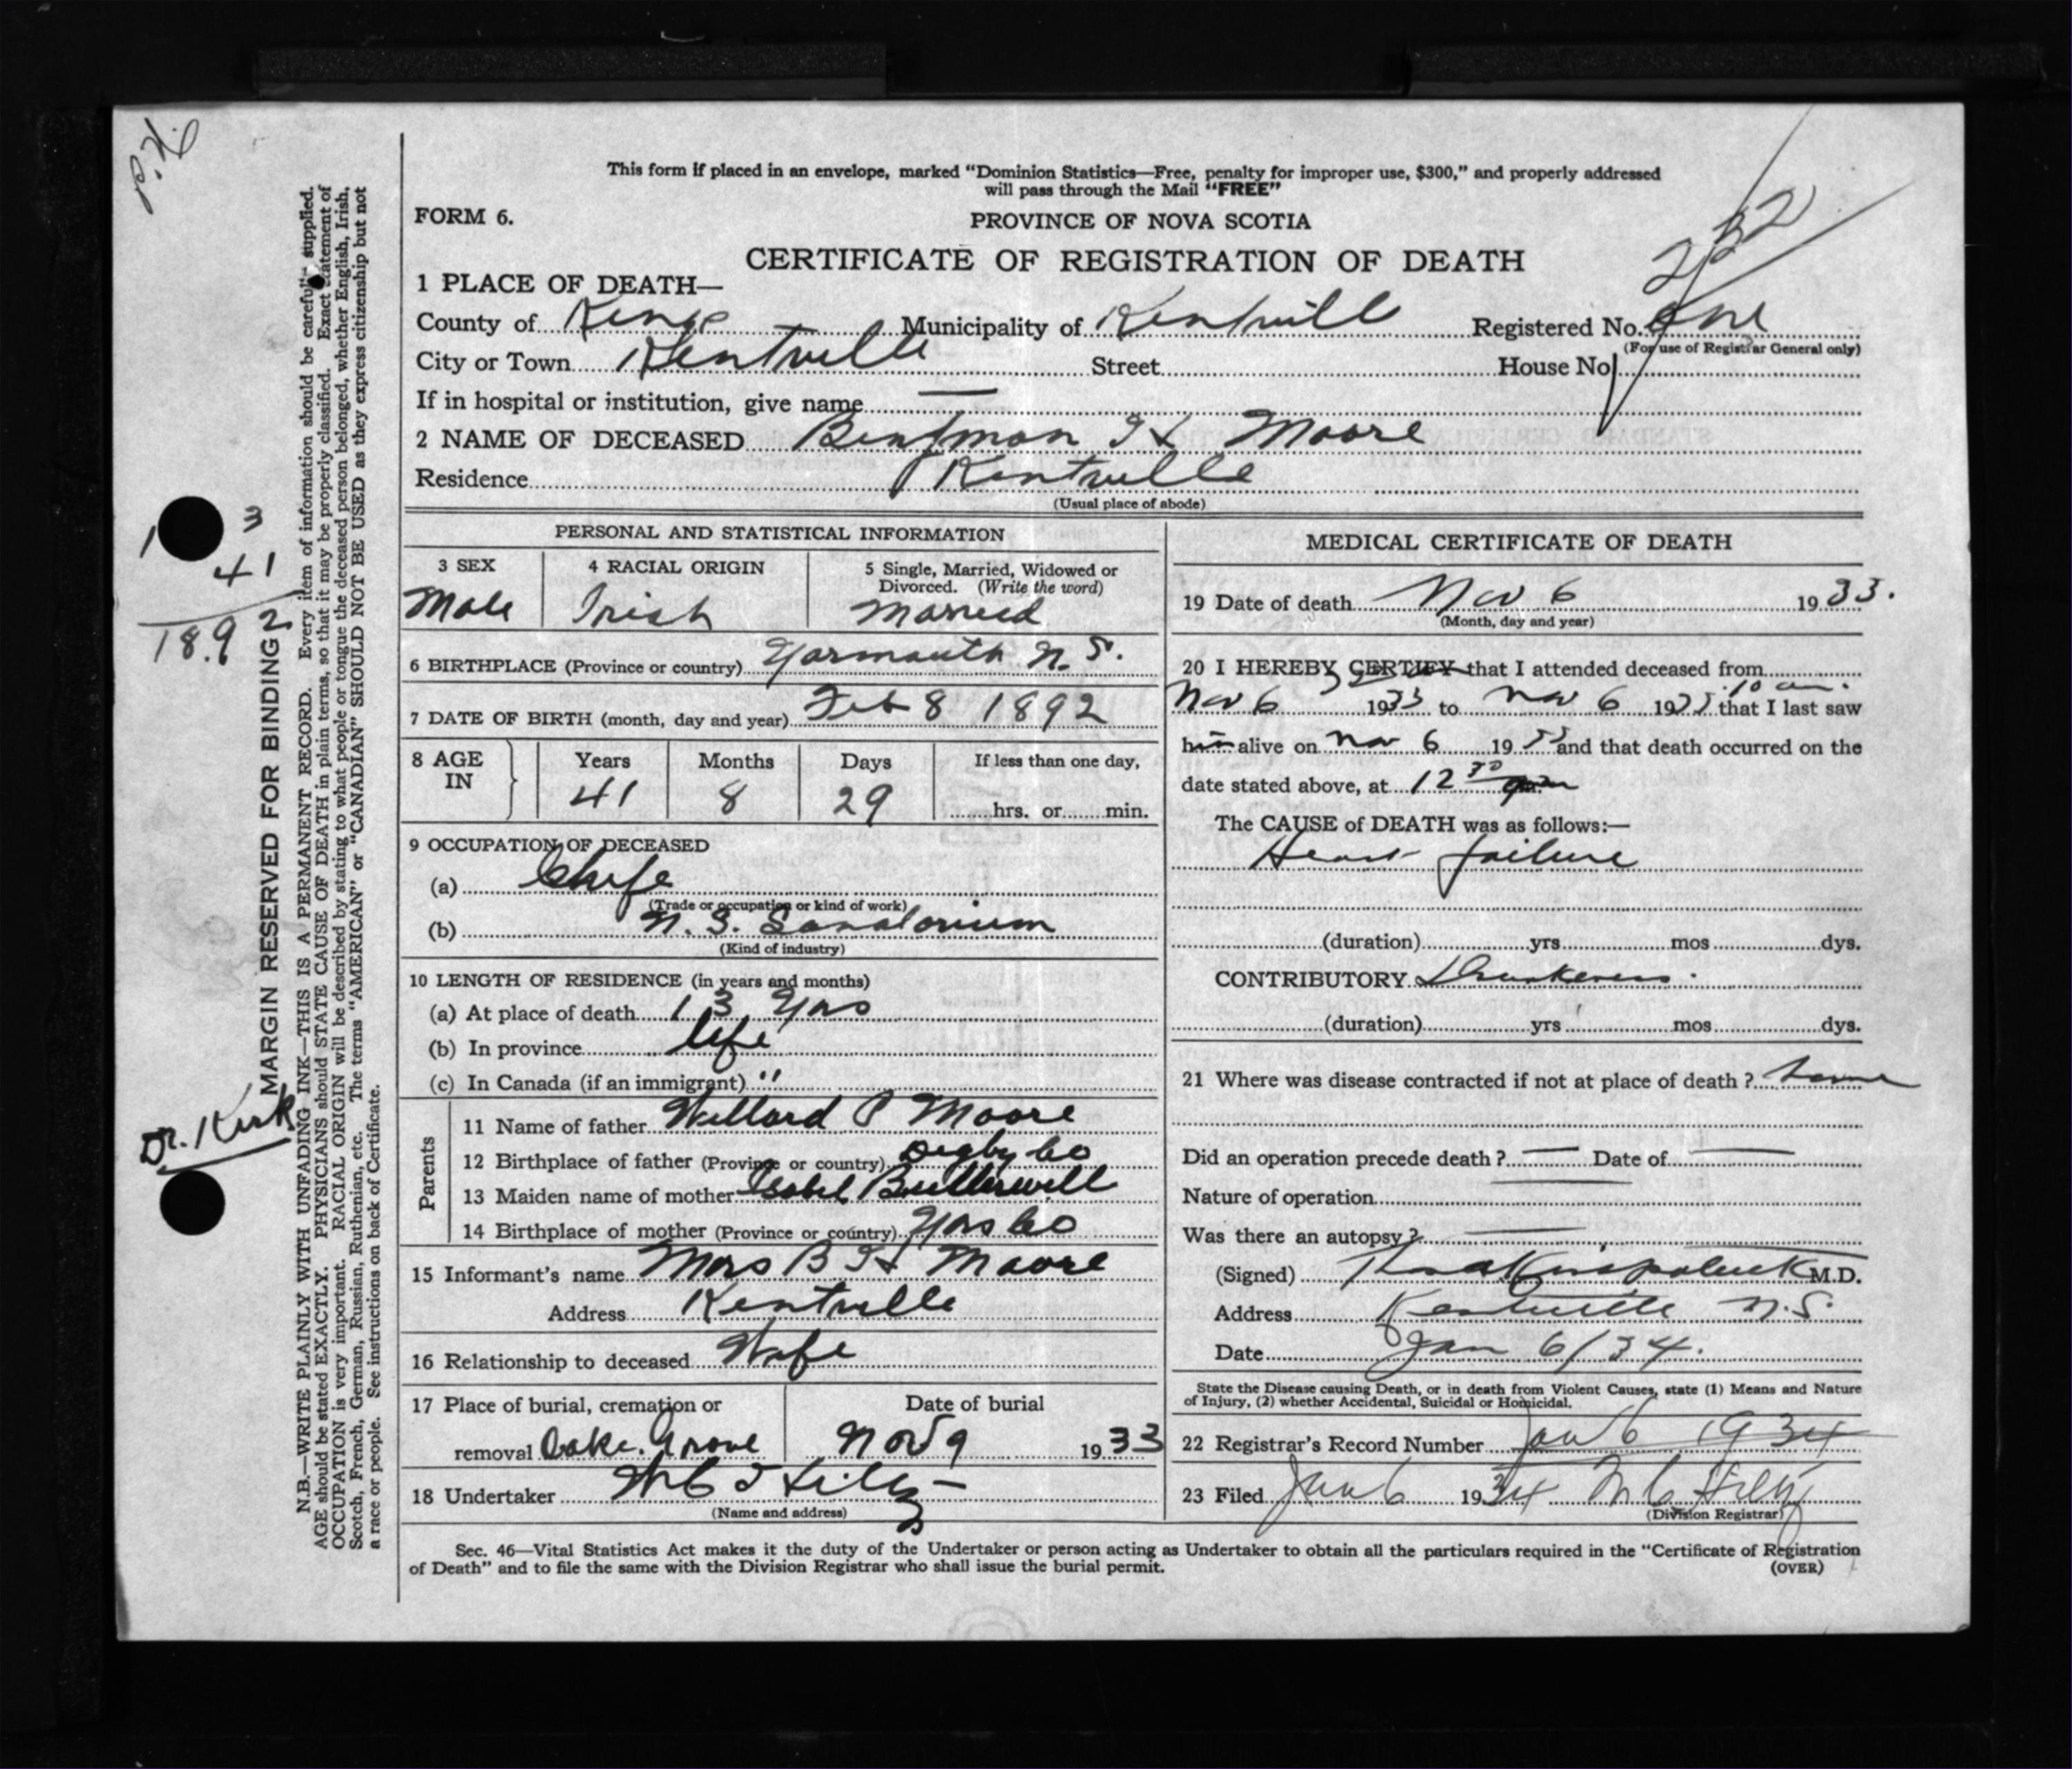 This form if placed in an envelope, marked “Dominion Statistics—Free, penalty for improper use, $300,” and properly addressed
will pass through the Mail “FREE”
FORM 6.
PROVINCE OF NOVA SCOTIA
232
CERTIFICATE OF REGISTRATION OF DEATH
1 PLACE OF DEATH—
County of Kings Municipality of Kentville Registered No. One
(For use of Registrar General only)
City or Town Kentville Street House No.
If in hospital or institution, give name —
2 NAME OF DECEASED Benjman H Moore
Residence Kentville
(Usual place of abode)
PERSONAL AND STATISTICAL INFORMATION
3 SEX 4 RACIAL ORIGIN 5 Single, Married, Widowed or
Divorced. (Write the word)
Male Irish Married
6 BIRTHPLACE (Province or country) Yarmouth N.S.
7 DATE OF BIRTH (month, day and year) Feb 8 1892
8 AGE IN Years Months Days If less than one day,
41 8 29 hrs. or min.
9 OCCUPATION OF DECEASED
(a) Chefe
(Trade or occupation or kind of work)
(b) N.S. Sanatorium
(Kind of industry)
10 LENGTH OF RESIDENCE (in years and months)
(a) At place of death 13 Yrs
(b) In province life
(c) In Canada (if an immigrant) "
Parents
11 Name of father Willard P Moore
12 Birthplace of father (Province or country) Digby Co
13 Maiden name of mother Isabel
14 Birthplace of mother (Province or country) Yar Co
15 Informant's name Mrs B H Moore
Address Kentville
16 Relationship to deceased Wife
17 Place of burial, cremation or Date of burial
removal Oake Grove Nov 9 1933
18 Undertaker
(Name and address)
MEDICAL CERTIFICATE OF DEATH
19 Date of death Nov 6 1933.
(Month, day and year)
20 I HEREBY CERTIFY that I attended deceased from
Nov 6 1933 to Nov 6 1933 10 am. that I last saw
him alive on Nov 6 1933 and that death occurred on the
date stated above, at 12 30
The CAUSE of DEATH was as follows:—
Heart failure
(duration) yrs mos dys.
CONTRIBUTORY Drunkeness.
(duration) yrs mos dys.
21 Where was disease contracted if not at place of death ?
Did an operation precede death ? — Date of —
Nature of operation
Was there an autopsy ? —
(Signed) M.D.
Address Kentville N.S.
Date Jan 6/34.
State the Disease causing Death, or in death from Violent Causes, state (1) Means and Nature
of Injury, (2) whether Accidental, Suicidal or Homicidal.
22 Registrar's Record Number Jan 6 1934
23 Filed Jan 6 1934
(Division Registrar)
Sec. 46—Vital Statistics Act makes it the duty of the Undertaker or person acting as Undertaker to obtain all the particulars required in the “Certificate of Registration
of Death” and to file the same with the Division Registrar who shall issue the burial permit.
(OVER)
MARGIN RESERVED FOR BINDING
N.B.—WRITE PLAINLY WITH UNFADING INK—THIS IS A PERMANENT RECORD. Every item of information should be carefully supplied.
AGE should be stated EXACTLY. PHYSICIANS should STATE CAUSE OF DEATH in plain terms, so that it may be properly classified. Exact statement of
OCCUPATION is very important. RACIAL ORIGIN will be described by stating to what people or tongue the deceased person belonged, whether English, Irish,
Scotch, French, German, Russian, Ruthenian, etc. The terms “AMERICAN” or “CANADIAN” SHOULD NOT BE USED as they express citizenship but not
a race or people. See instructions on back of Certificate.
3
41
1892
Dr. Kirk